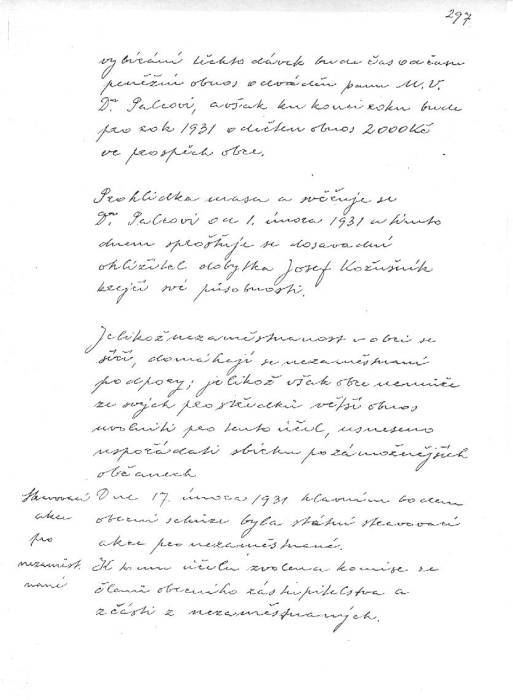 297
vybírání těchto dávek bude čas od času
peněžní obnos odváděn panu M.V.
Dr. Palcovi, avšak ku konci roku bude
pro rok 1931 odečten obnos 2000 Kč
ve prospěch obce.
Prohlídka masa a svěřuje se
Dr. Palcovi od 1. února 1931 a tímto
dnem sprošťuje se dosavadní
ohližitel dobytka Josef Kožušník
krejčí své působnosti.
Jelikož nezaměstnanost v obci se
šíří, domáhají se nezaměstnaní
podpory; jelikož však obec nemůže
ze svých prostředků větší obnos
uvolniti pro tento účel, usneseno
uspořádati sbírku po zámožnějších
občanech
Stravovací
akce
pro
nezaměst.
nané
Dne 17. února 1931 hlavním bodem
obecní schůze byla státní stravovací
akce pro nezaměstnané.
K tomu účelu zvolena komise ze
členů obecního zastupitelstva a
z části z nezaměstnaných.